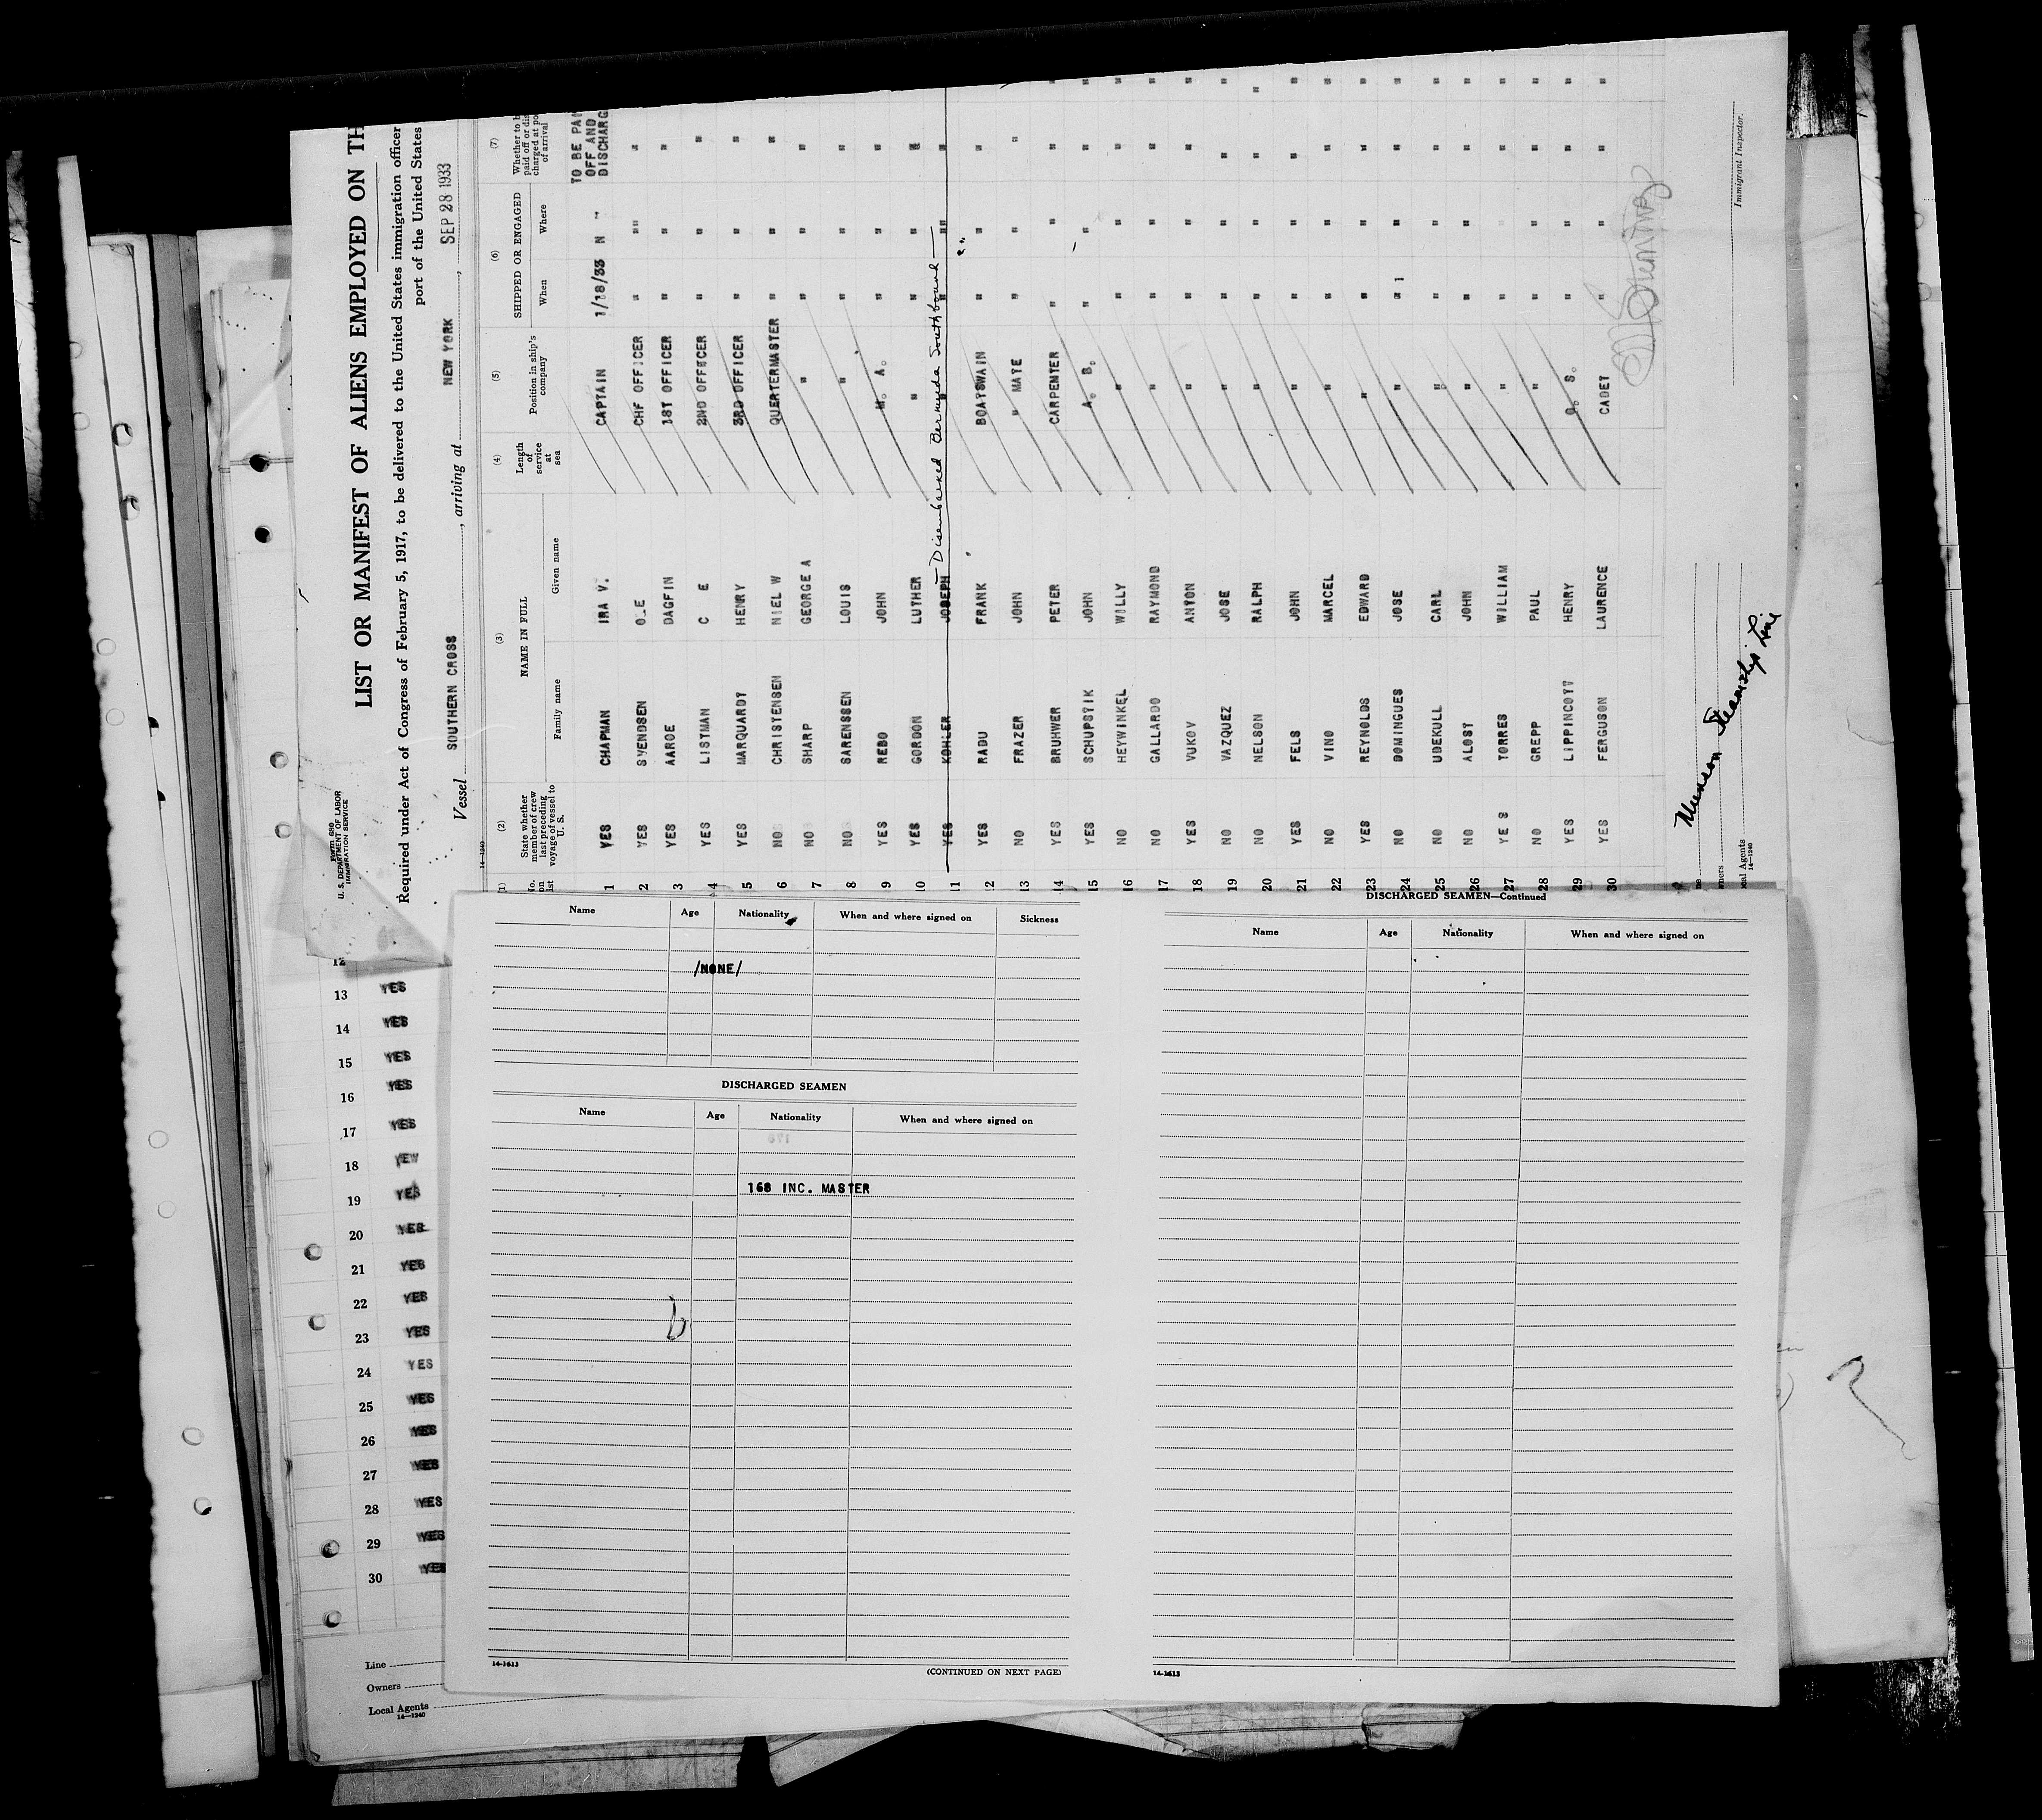 Form 680
U. S. DEPARTMENT OF LABOR
IMMIGRATION SERVICE
LIST OR MANIFEST OF ALIENS EMPLOYED ON TH
Required under Act of Congress of February 5, 1917, to be delivered to the United States immigration officer
port of the United States
Vessel SOUTHERN CROSS, arriving at NEW YORK, SEP 28 1933
14—1240
(1) (2) (3) (4) (5) (6) (7)
No. on list
State whether member of crew last preceding voyage of vessel to U. S.
NAME IN FULL
Family name Given name
Length of service at sea
Position in ship's company
SHIPPED OR ENGAGED
When Where
Whether to b paid off or dis charged at po of arrival
1 YES CHAPMAN IRA V. CAPTAIN 1/18/33 N TO BE PAI OFF AND DISCHARG
2 YES SVENDSEN OLE CHF OFFICER " " "
3 YES AAROE DAGFIN 1ST OFFICER " " "
4 YES LISTMAN C E 2ND OFFICER " " "
5 YES MARQUARDT HENRY 3RD OFFICER " " "
6 NO CHRISTENSEN NIEL W QUERTERMASTER " " "
7 NO SHARP GEORGE A " " " "
8 NO SARENSSEN LOUIS " " " "
9 YES REBO JOHN M. A. " " "
10 YES GORDON LUTHER " " " "
11 YES KOHLER JOSEPH — Disembarked Bermuda Southbound — " " " "
12 YES RADU FRANK BOATSWAIN " " "
13 NO FRAZER JOHN " MATE " " "
14 YES BRUHWER PETER CARPENTER " " " "
15 YES SCHUPSTIK JOHN A. B. " " " "
16 NO HEYWINKEL WILLY " " " " "
17 NO GALLARDO RAYMOND " " " " "
18 YES VUKOV ANTON " " " " "
19 NO VAZQUEZ JOSE " " " " "
20 NO NELSON RALPH " " " " "
21 YES FELS JOHN " " " " "
22 NO VINO MARCEL " " " " "
23 YES REYNOLDS EDWARD " " " " "
24 NO DOMINGUES JOSE " " " " "
25 NO UDEKULL CARL " " " " "
26 NO ALOST JOHN " " " " "
27 YES TORRES WILLIAM " " " " "
28 NO GREPP PAUL " " " " "
29 YES LIPPINCOTT HENRY O. S. " " " "
30 YES FERGUSON LAURENCE CADET " " " "
Munson Steamship Line
ners
cal Agents
14—1240
Immigrant Inspector.
12
13 YES
14 YES
15 YES
16 YES
17 YES
18 YEW
19 YES
20 YES
21 YES
22 YES
23 YES
24 YES
25 YES
26 YES
27 YES
28 YES
29 YES
30 YES
Line
Owners
Local Agents
14—1240
Name Age Nationality When and where signed on Sickness
/NONE/
DISCHARGED SEAMEN
Name Age Nationality When and where signed on
168 INC. MASTER
14-1613
(CONTINUED ON NEXT PAGE)
DISCHARGED SEAMEN—Continued
Name Age Nationality When and where signed on
14-1613